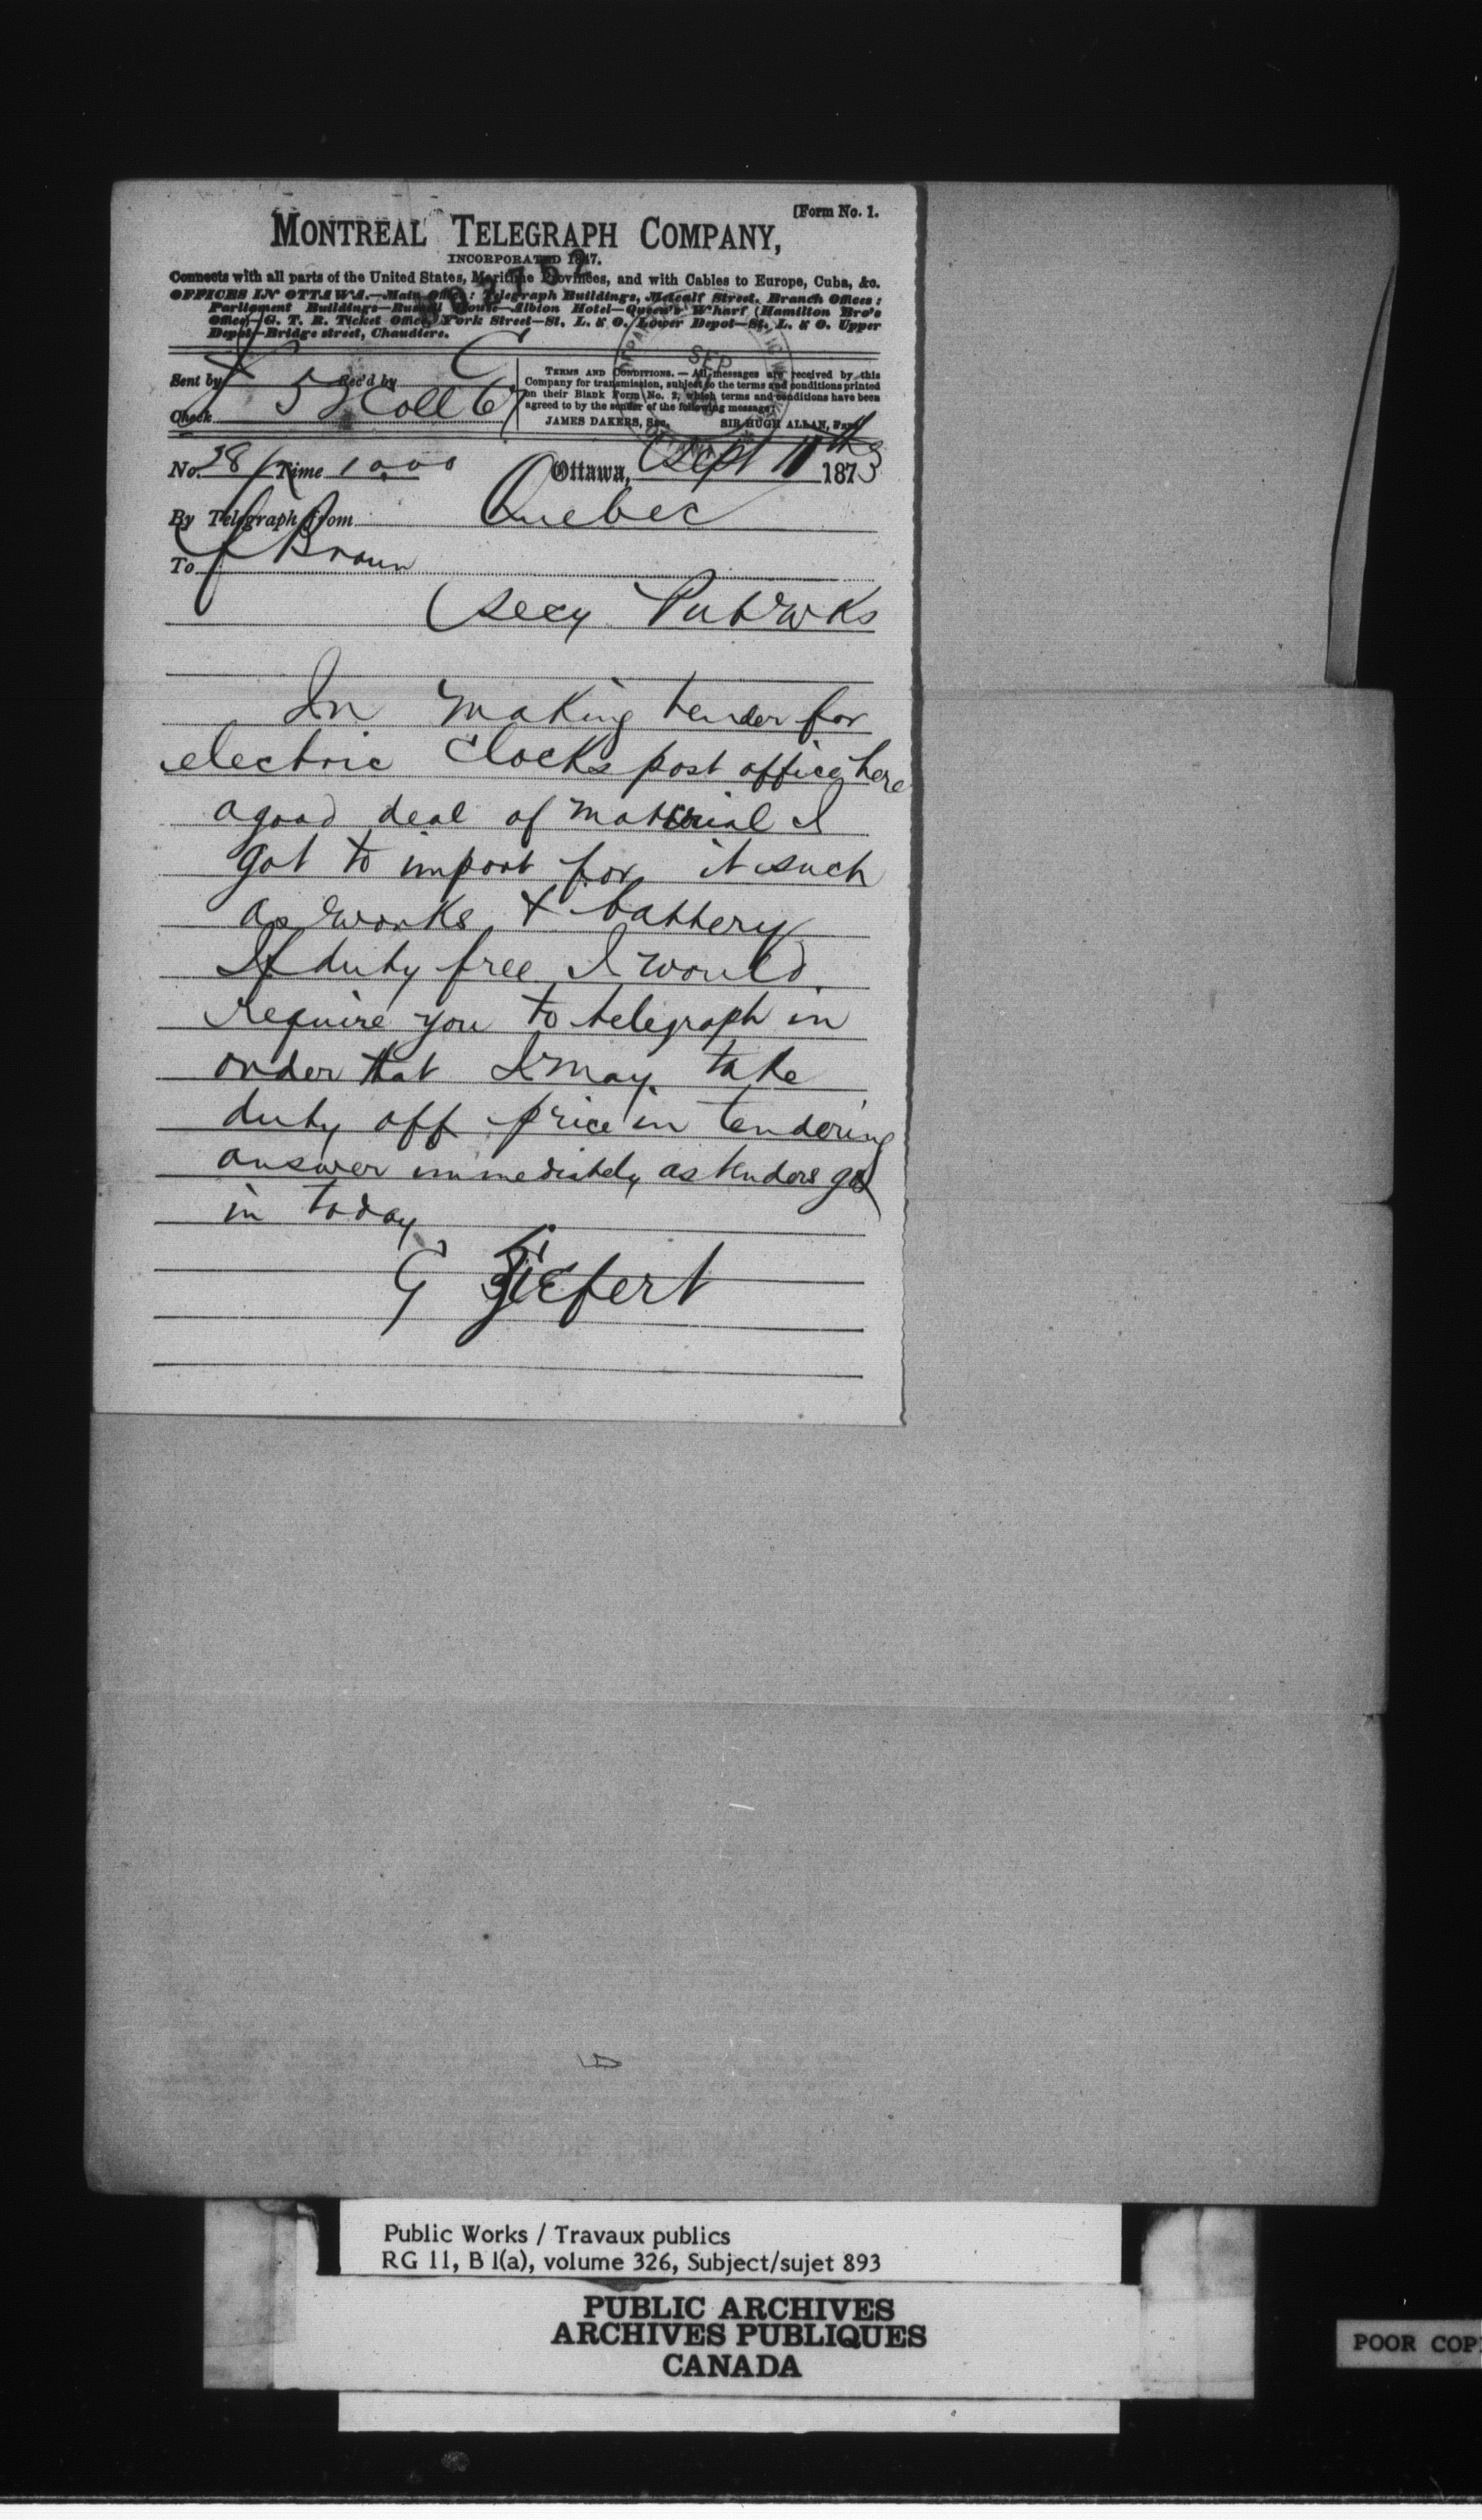 [Form No. 1.
MONTREAL TELEGRAPH COMPANY,
INCORPORATED 1847.
Connects with all parts of the United States, Maritime Provinces, and with Cables to Europe, Cuba, &c.
OFFICES IN OTTAWA.—Main Office: Telegraph Buildings, Metcalf Street. Branch Offices:
Parliament Buildings—Russell House—Albion Hotel—Queen's Wharf (Hamilton Bro's
Office)—G. T. R. Ticket Office, York Street—St. L. & O. Lower Depot—St. L. & O. Upper
Depot—Bridge street, Chaudiere.
Sent by Rec'd by
Check Coll 67
TERMS AND CONDITIONS.—All messages are received by this
Company for transmission, subject to the terms and conditions printed
on their Blank Form No. 2, which terms and conditions have been
agreed to by the sender of the following message.
JAMES DAKERS, Sec. SIR HUGH ALLAN, Pres.
SEP
No. 28 Time 1000 Ottawa, Sept 11th 1873
By Telegraph from Quebec
To F Braun
Secy Pub Wks
In making tender for
electric clocks post office here
a good deal of material I
got to import for it such
as works & battery
If duty free I would
require you to telegraph in
order that I may take
duty off price in tendering
answer immediately as tenders go
in today
G Siefert
Public Works / Travaux publics
RG 11, B 1(a), volume 326, Subject/sujet 893
PUBLIC ARCHIVES
ARCHIVES PUBLIQUES
CANADA
POOR COP